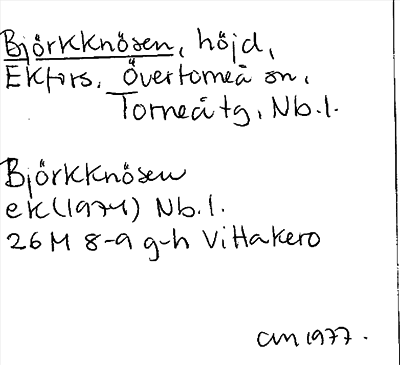 Björkknösen, höjd,
Ekfors. Övertorneå sn,
Torneå tg, Nb.l.
Björkknösen
ek (1974) Nb.l.
26 M 8-9 g-h Vittakero
am 1977.